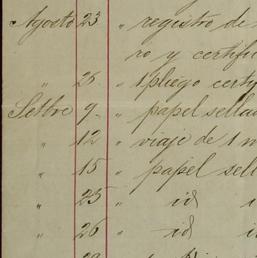 Agosto 23 " registro de
ro y certifi
" 26 " 1 pliego certy
Setbre 9 " papel sella
" 12 " viaje de 1 m
" 15 " papel sell
" 25 " id i
" 26 " id i